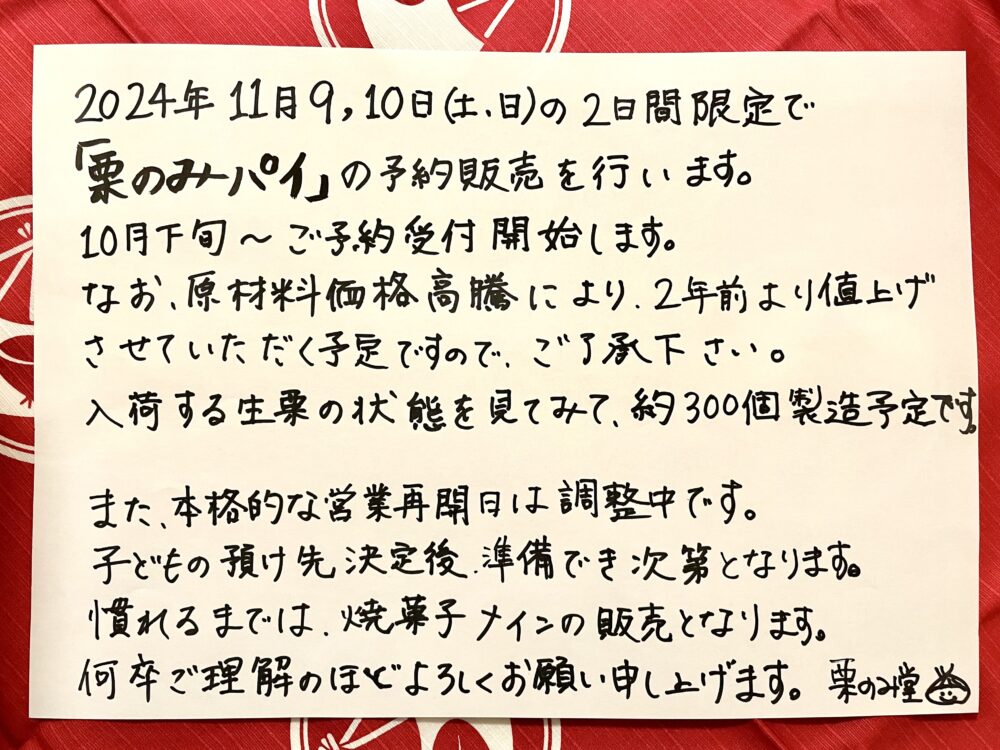 2024年 11月9,10日(土、日)の 2日間限定で
「栗のみパイ」の予約販売を行います。
10月下旬～ご予約受付開始します。
なお、原材料価格高騰により、2年前より値上げ
させていただく予定ですので、ご了承下さい。
入荷する生栗の状態を見てみて、約300個製造予定です。
また、本格的な営業再開日は調整中です。
子どもの預け先決定後、準備でき次第となります。
慣れるまでは、焼菓子メインの販売となります。
何卒ご理解のほどよろしくお願い申し上げます。 栗のみ堂